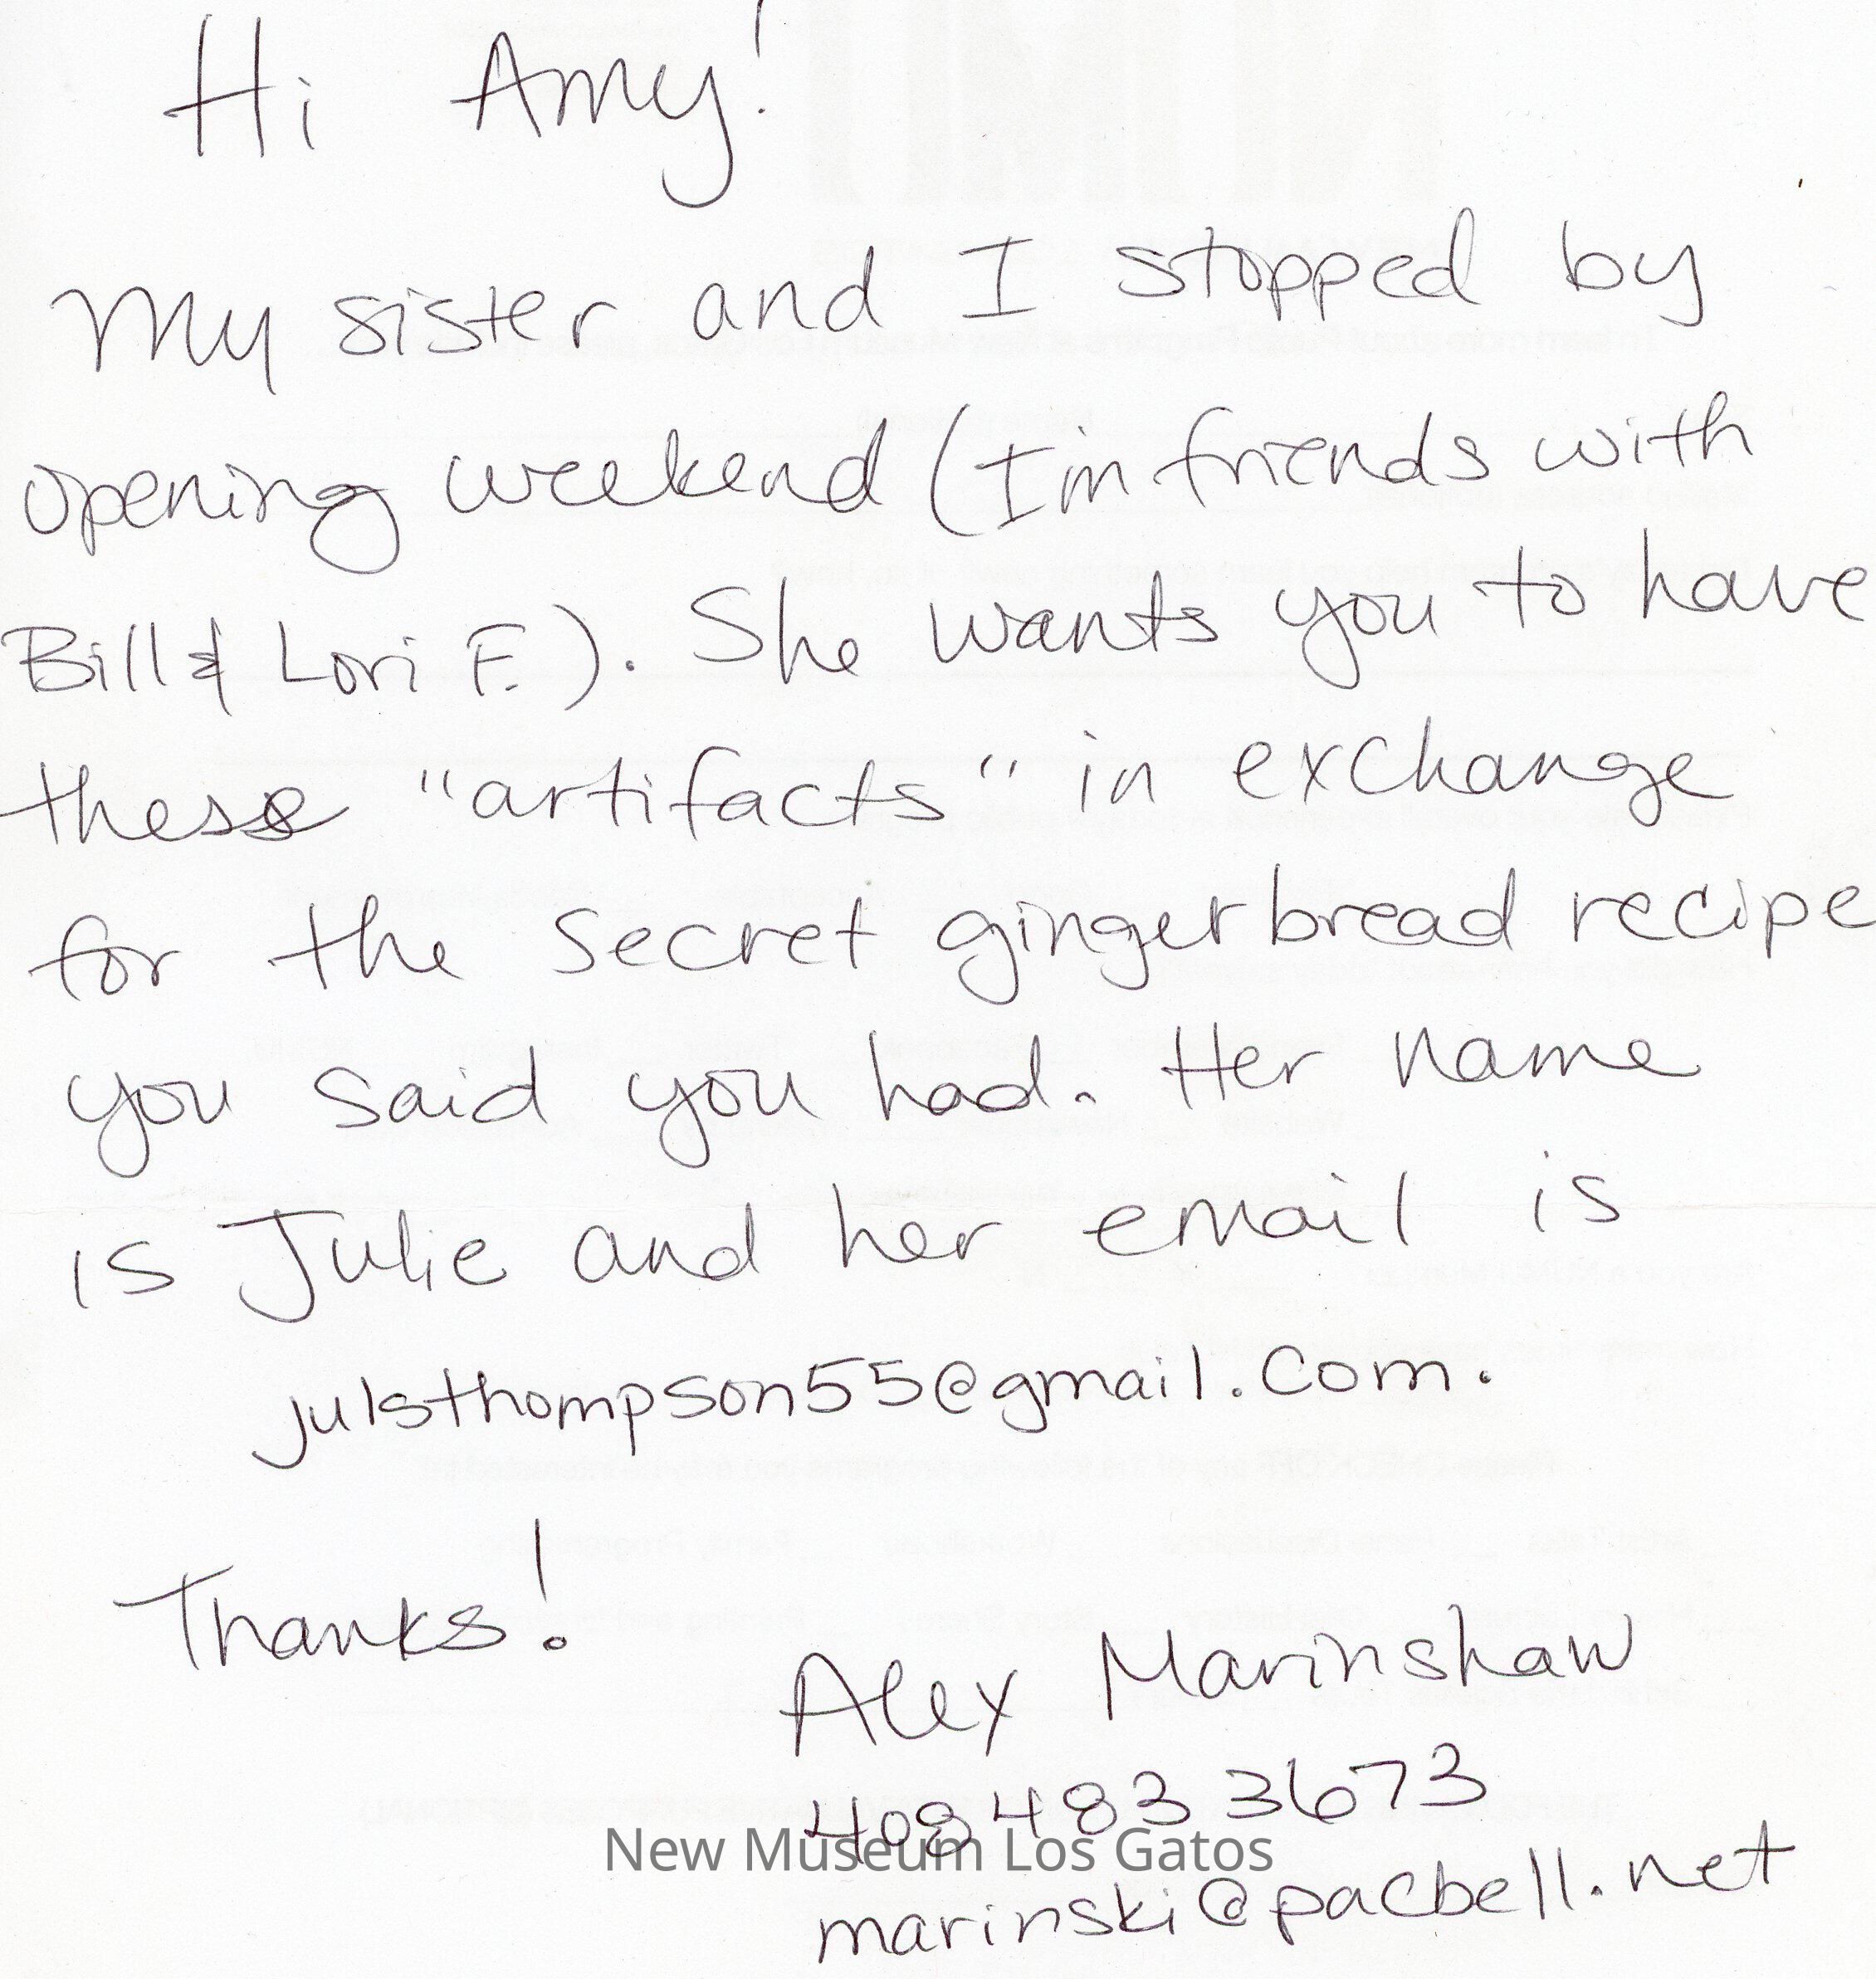 Hi Amy!
My sister and I stopped by
opening weekend (I'm friends with
Bill & Lori F.). She wants you to have
these "artifacts" in exchange
for the secret gingerbread recipe
you said you had. Her name
is Julie and her email is
julsthompson55@gmail.com.
Thanks!
Alex Marinshaw
408 483 3673
New Museum Los Gatos
marinski@pacbell.net